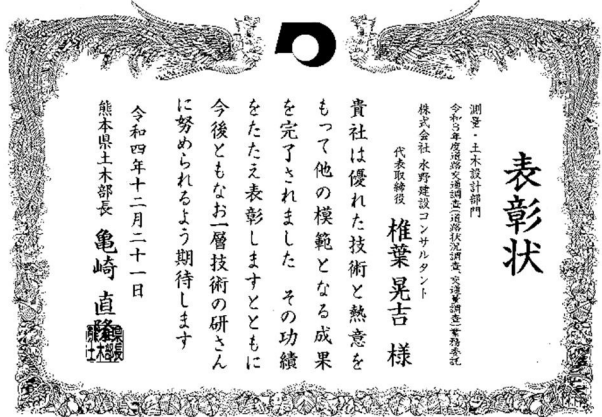 表彰状
測量・土木設計部門
令和3年度道路交通調査(道路状況調査、交通量調査)業務委託
株式会社 水野建設コンサルタント
代表取締役 椎葉 晃吉 様
貴社は優れた技術と熱意を
もって他の模範となる成果
を完了されました その功績
をたたえ表彰しますとともに
今後ともなお一層技術の研さん
に努められるよう期待します
令和四年十二月二十一日
熊本県土木部長 亀崎 直隆